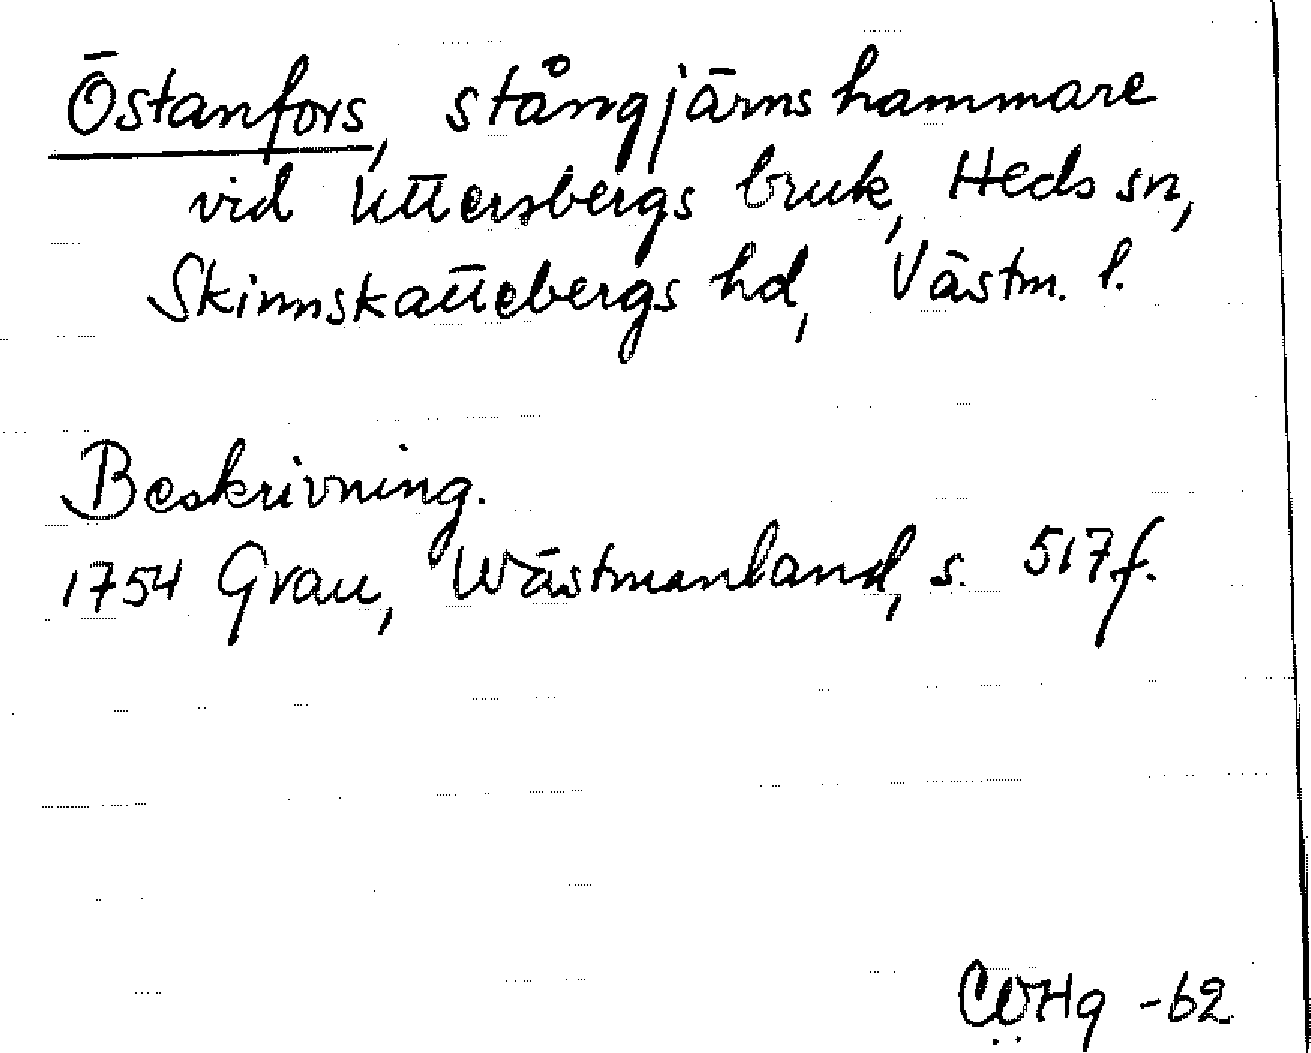 Östanfors, stångjärnshammare
vid Uttersbergs bruk, Heds sn,
Skinnskattebergs hd, Västm. l.
Beskrivning.
1754 Grau, Wästmanland, s. 517 f.
CÖHg -62